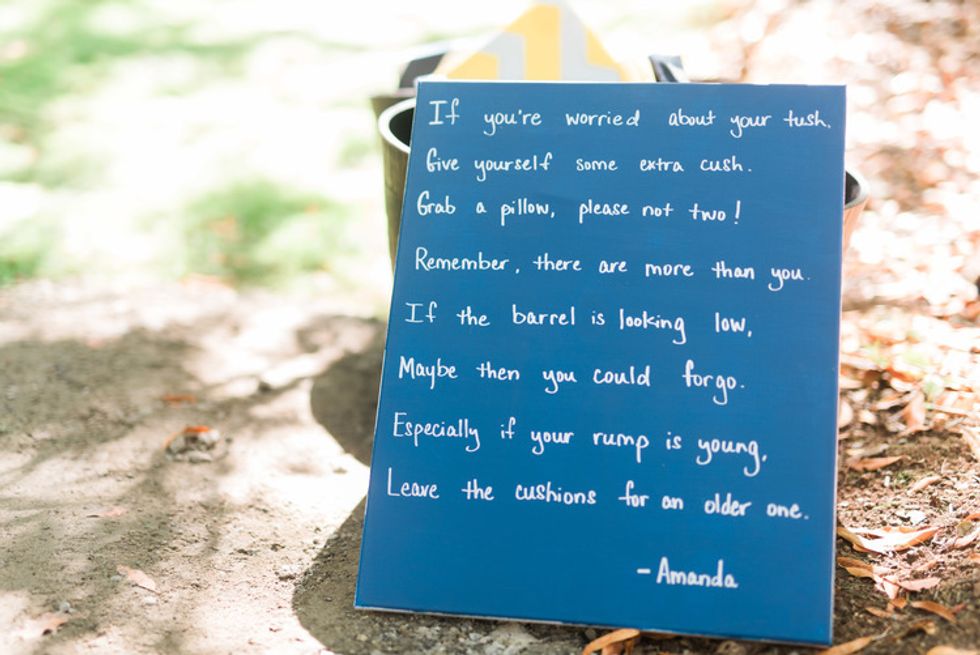 If you're worried about your tush,
Give yourself some extra cush.
Grab a pillow, please not two!
Remember, there are more than you.
If the barrel is looking low,
Maybe then you could forgo.
Especially if your rump is young,
Leave the cushions for an older one.
- Amanda